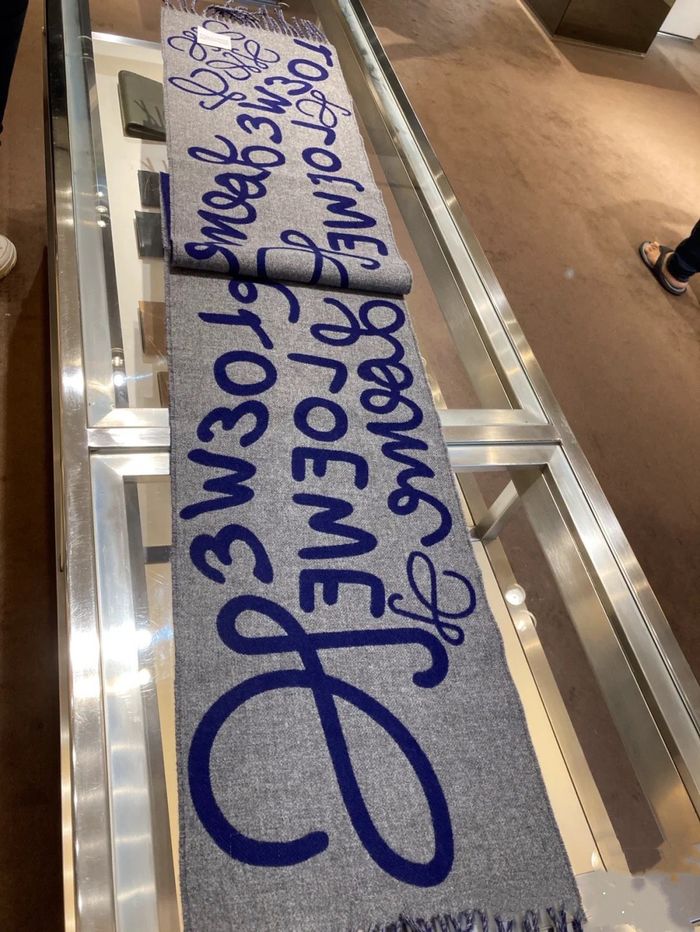 LOEWE
LOEWE
Loewe
LOEWE
LOEWE
Loewe